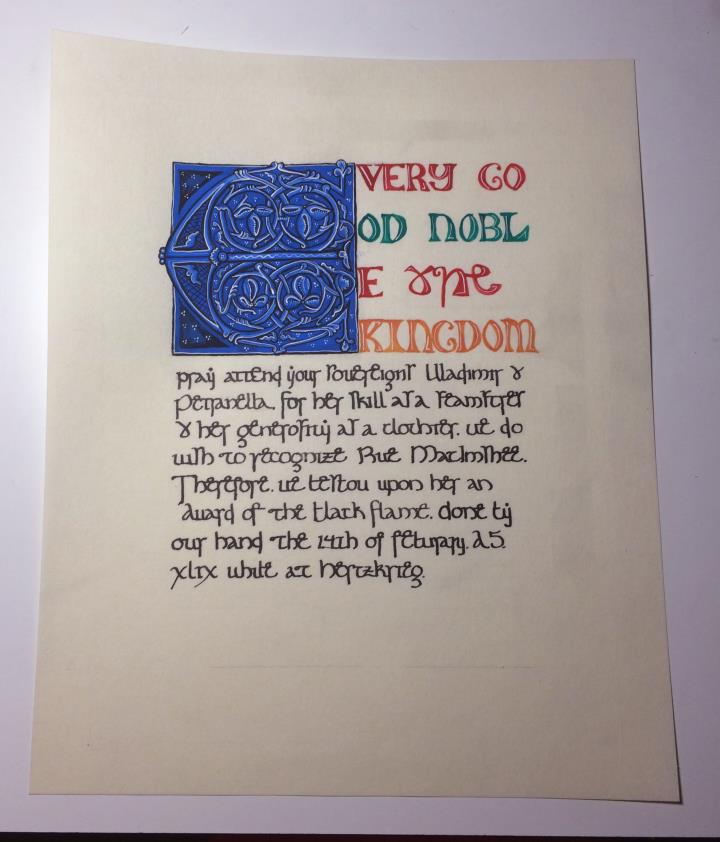 EVERY GO
OD NOBL
E & the
KINGDOM
pray attend your sovereigns Vladimir &
Petranella. for her skill as a seamster
& her generosity as a clothier. we do
wish to recognize Rue MacImshee.
Therefore. we bestow upon her an
award of the black flame. done by
our hand the 14th of february. A.S.
xlix while at hertzkrieg.